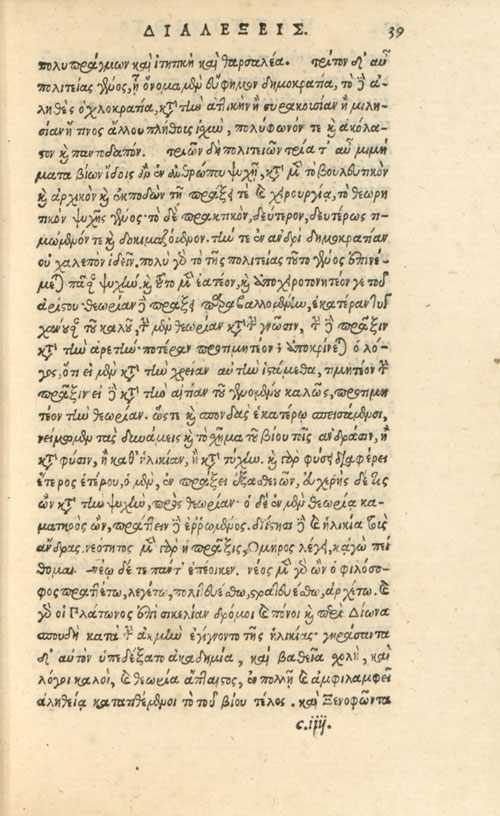 ΔΙΑΛΕΞΕΙΣ. 39
πολυπράγμων καὶ ἰτητικὴ καὶ θαρσαλέα. τρίτον δ' αὖ
πολιτείας γένος, ᾗ ὄνομα μὲν εὔφημον δημοκρατία, τὸ δὲ ἀ-
ληθὲς ὀχλοκρατία, κατὰ τὴν ἀττικὴν ἢ συρακουσίαν ἢ μιλη-
σίαν ἤ τινος ἄλλου πλήθους ἰσχὺν, πολύφωνόν τε καὶ ἀκόλα-
στον καὶ παντοδαπόν. τριῶν δὴ πολιτειῶν τρία τ' αὖ μιμή
ματα βίων ἴδοις ἂν ἐν ἀνθρώπου ψυχῇ, κατὰ μὲν τὸ βουλευτικὸν
καὶ ἀρχικὸν καὶ ἐκποδὼν τῇ πράξει τε καὶ χειρουργίᾳ, τὸ θεωρη
τικὸν ψυχῆς γένος· τὸ δὲ πρακτικὸν, δεύτερον, δευτέρως τι-
μώμενόν τε καὶ δοκιμαζόμενον. τὴν τε ἐν ἀνδρὶ δημοκρατίαν
οὐ χαλεπὸν ἰδεῖν. πολὺ γὰρ τὸ τῆς πολιτείας τοῦτο γένος ἐπινέ-
με) πᾶσαν ψυχήν. καὶ τοῦτο μὲν ἐατέον, καὶ ἀποχειροτονητέον γε τοῦ
ἀρίστου· θεωρίαν δὲ πράξει παραβαλλομένην, ἑκατέραν τυγ
χάνουσαν τοῦ καλοῦ, τὴν μὲν θεωρίαν κατὰ τὴν γνῶσιν, τὴν δὲ πρᾶξιν
κατὰ τὴν ἀρετήν· ποτέραν προτιμητέον; ὑποκρίνε) ὁ λό-
γος, ὅτι εἰ μὲν κατὰ τὴν χρείαν αὐτὴν ἱστάμεθα, τιμητέον τὴν
πρᾶξιν· εἰ δὲ κατὰ τὴν αἰτίαν τοῦ γενομένου καλῶς, προτιμη
τέον τὴν θεωρίαν. ὥστε καὶ σπονδὰς ἑκατέρῳ σπεισάμενοι,
νείμωμεν τὰς δυνάμεις καὶ τὸ σχῆμα τοῦ βίου τοῖς ἀνδράσιν, ἢ
κατὰ φύσιν, ἢ καθ' ἡλικίαν, ἢ κατὰ τύχην. καὶ γὰρ φύσει διαφέρει
ἕτερος ἑτέρου, ὁ μὲν, ἐν πράξει ἐξασθενῶν, εὐχερὴς δέ τις
ὢν κατὰ τὴν ψυχὴν, πρὸς θεωρίαν· ὁ δὲ ἐν μὲν θεωρίᾳ κα-
ματηρὸς ὢν, πράττειν δὲ ἐρρωμένος. διΐστησι δὲ καὶ ἡλικία τοὺς
ἄνδρας. νεότητος μὲν γὰρ ἡ πρᾶξις, Ὅμηρος λέγει, κἀγὼ πεί
θομαι. —νέῳ δέ τε πάντ' ἐπέοικεν. νέος μὲν γὰρ ὢν ὁ φιλόσο-
φος πραττέτω, λεγέτω, πολιτευέσθω, στρατευέσθω, ἀρχέτω. καὶ
γὰρ οἱ Πλάτωνος ἐπὶ σικελίαν δρόμοι καὶ πόνοι καὶ περὶ Δίωνα
σπουδὴ κατὰ τὴν ἀκμὴν ἐγίγνοντο τῆς ἡλικίας· γηράσαντα
δ' αὐτὸν ὑπεδέξατο ἀκαδημία, καὶ βαθεῖα σχολὴ, καὶ
λόγοι καλοὶ, καὶ θεωρία ἄπταιστος, ἐν πολλῇ καὶ ἀμφιλαμφεῖ
ἀληθείᾳ κατατιθέμενοι τὸ τοῦ βίου τέλος. καὶ Ξενοφῶντα
c.iiij.